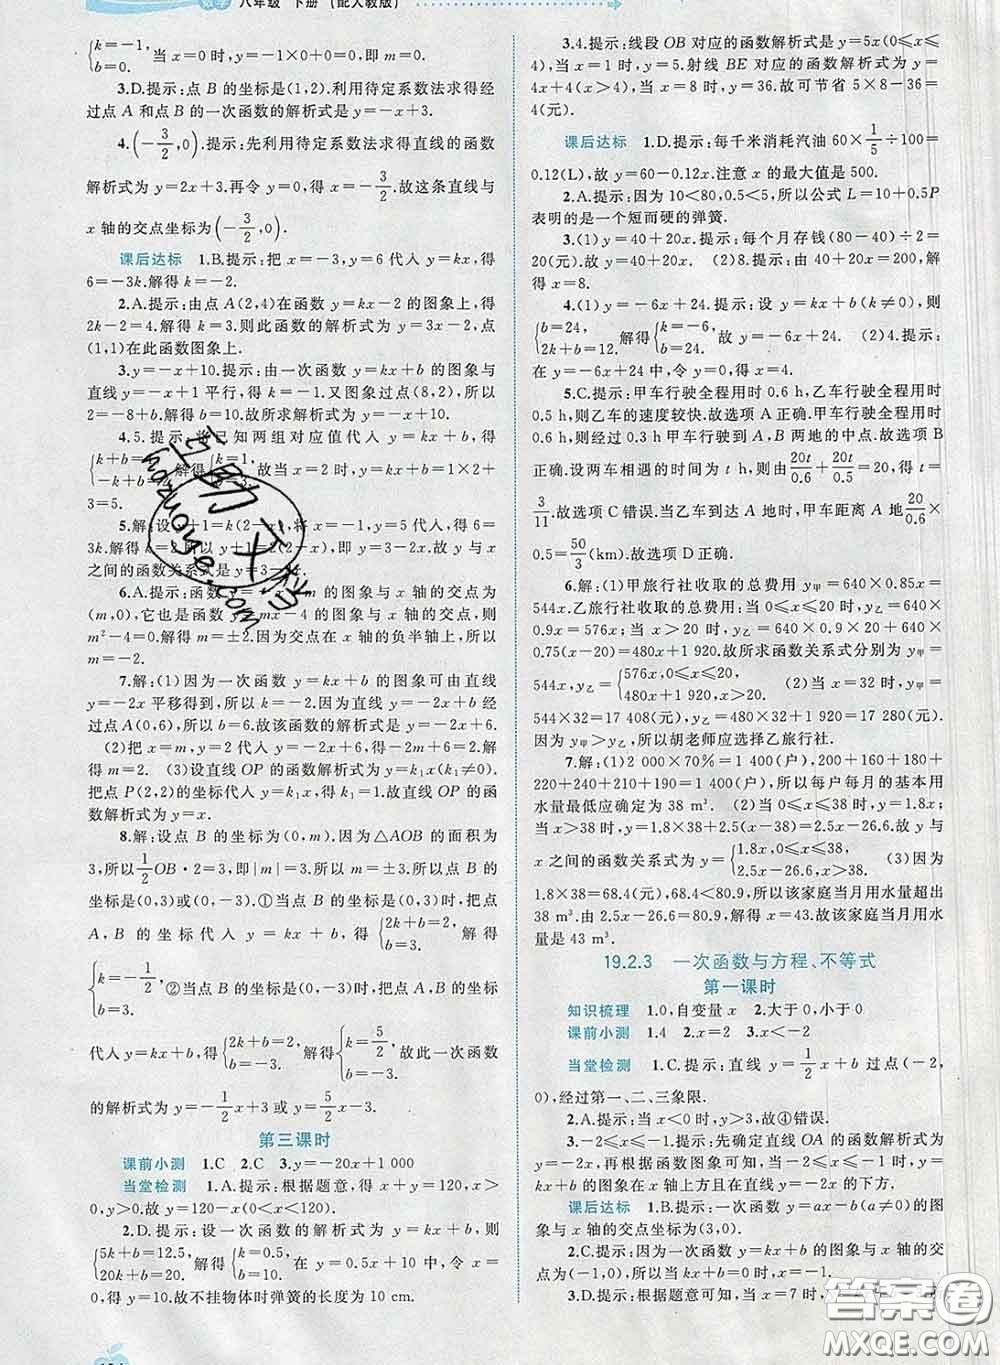 数学 八年级 下册 (配人教版)
{k=-1,
b=0. 即 y=-x+0,即 m=0.
3.D.提示:点 B 的坐标是(1,2).利用待定系数法求得经
过点 A 和点 B 的一次函数的解析式是 y=-x+3.
4.(-3/2,0).提示:先利用待定系数法求得直线的函数
解析式为 y=2x+3.再令 y=0,得 x=-3/2.故这条直线与
x 轴的交点坐标为(-3/2,0).
课后达标 1.B.提示:把 x=-3,y=6 代入 y=kx,得
6=-3k.解得 k=-2.
2.A.提示:由点 A(2,4)在函数 y=kx-2 的图象上,得
2k-2=4.解得 k=3.则此函数的解析式为 y=3x-2,点
(1,1)在此函数图象上.
3.y=-x+10.提示:由一次函数 y=kx+b 的图象与
直线 y=-x+1 平行,得 k=-1.又图象过点(8,2),所以
2=-8+b.解得 b=10.故所求解析式为 y=-x+10.
4.5.提示:将已知两组对应值代入 y=kx+b,得
{k+b=
-k+b= 解得{k=1,
故当 x=2 时,y=kx+b=1×2+
3=5.
5.解:设 y+1=k(2-x),将 x= 代入,得
解得 k=2.所以 y+1=2(2-x),即 y=3-2x.故 y 与 x
之间的函数关系式是 y=3-2x.
6.A.提示:函数 y= x+m 的图象与 x 轴的交点为
(m,0),它也是函数 y= mx-4 的图象与 x 轴的交点,所以
m²-4=0.解得 m=±2.因为交点在 x 轴的负半轴上,所以
m=-2.
7.解:(1)因为一次函数 y=kx+b 的图象可由直线
y=-2x 平移得到,所以 k=-2.又直线 y=-2x+b 经
过点 A(0,6),所以 b=6.故该函数的解析式是 y=-2x+6.
(2)把 x=m,y=2 代入 y=-2x+6,得 2=-2m+6.解得
m=2. (3)设直线 OP 的函数解析式为 y=k₁x(k₁≠0).
把点 P(2,2)的坐标代入 y=k₁x,得 k₁=1.故直线 OP 的
函数解析式为 y=x.
8.解:设点 B 的坐标为(0,m).因为△AOB 的面积为
3,所以1/2OB·2=3,即|m|=3.所以 m=±3.所以点 B 的
坐标为(0,3)或(0,-3).①当点 B 的坐标是(0,3)时,把点
A,B 的坐标代入 y=kx+b,得{2k+b=2,
b=3. 解得
{k=-1/2,
b=3. ②当点 B 的坐标是(0,-3)时,把点 A,B 的坐标
代入 y=kx+b,得{2k+b=2,
b=-3. 解得{k=5/2,
b=-3. 故此一次函数
的解析式为 y=-1/2x+3 或 y=5/2x-3.
第三课时
课前小测 1.C 2.C 3.y=-20x+1 000
当堂检测 1.A.提示:根据题意,得 x+y=120,x>
0,故 y=120-x(0<x<120).
2.D.提示:设一次函数的解析式为 y=kx+b,则
{5k+b=12.5,
20k+b=20. 解得{k=0.5,
b=10. 在 y=0.5x+10 中,令 x=
0,得 y=10.故不挂物体时弹簧的长度为 10 cm.
3.4.提示:线段 OB 对应的函数解析式是 y=5x(0≤x≤
4),当 x=1 时,y=5.射线 BE 对应的函数解析式是 y=
4x+4(x>4),当 x=8 时,y=36.故可节省 5×8-36=
4(元).
课后达标 1.D.提示:每千米消耗汽油 60×1/5÷100=
0.12(L),故 y=60-0.12x.注意 x 的最大值是 500.
2.A.提示:因为 10<80,0.5<5,所以公式 L=10+0.5P
表明的是一个短而硬的弹簧.
3.(1)y=40+20x.提示:每个月存钱(80-40)÷2=
20(元).故 y=40+20x. (2)8.提示:由 40+20x=200,解
得 x=8.
4.(1)y=-6x+24.提示:设 y=kx+b(k≠0),则
{b=24,
2k+b=12. 解得{k=-6,
b=24. 故 y=-6x+24. (2)4.提示:
在 y=-6x+24 中,令 y=0,得 x=4.
5.C.提示:甲车行驶全程用时 0.6 h,乙车行驶全程用时
0.5 h,则乙车的速度较快.故选项 A 正确.甲车行驶全程用时
0.6 h,则经过 0.3 h 甲车行驶到 A,B 两地的中点.故选项 B
正确.设两车相遇的时间为 t h,则由20t/0.6+20t/0.5=20,得 t=
3/11.故选项 C 错误.当乙车到达 A 地时,甲车距离 A 地20/0.6×
0.5=50/3(km).故选项 D 正确.
6.解:(1)甲旅行社收取的总费用 y甲=640×0.85x=
544x.乙旅行社收取的总费用:当 0≤x≤20 时,y乙=640×
0.9x=576x;当 x>20 时,y乙=640×0.9×20+640×
0.75(x-20)=480x+1 920.故所求函数关系式分别为 y甲=
544x,y乙={576x,0≤x≤20,
480x+1 920,x>20. (2)当 x=32 时,y甲=
544×32=17 408(元),y乙=480×32+1 920=17 280(元).
因为 y甲>y乙,所以胡老师应选择乙旅行社.
7.解:(1)2 000×70%=1 400(户),200+160+180+
220+240+210+190=1 400(户),所以每户每月的基本用
水量最低应确定为 38 m³. (2)当 0≤x≤38 时,y=1.8x;
当 x>38 时,y=1.8×38+2.5(x-38)=2.5x-26.6.故 y 与
x 之间的函数关系式为 y={1.8x,0≤x≤38,
2.5x-26.6,x>38. (3)因为
1.8×38=68.4(元),68.4<80.9,所以该家庭当月用水量超出
38 m³.由 2.5x-26.6=80.9,解得 x=43.故该家庭当月用水
量是 43 m³.
19.2.3 一次函数与方程、不等式
第一课时
知识梳理 1.0,自变量 x 2.大于 0,小于 0
课前小测 1.4 2.x=2 3.x<-2
当堂检测 1.C.提示:直线 y=1/2x+b 过点(-2,
0),经过第一、二、三象限.
2.A.提示:当 x<0 时,y>3.故④错误.
3.-2≤x≤-1.提示:先确定直线 OA 的函数解析式为
y=2x,再根据函数图象可知,当-2≤x≤-1 时,函数 y=
kx+b 的图象在 x 轴上方且在直线 y=2x 的下方.
课后达标 1.B.提示:一次函数 y=ax-b(a≠0)的图
象与 x 轴的交点坐标为(3,0).
2.C.提示:因为一次函数 y=kx+b 的图象与 x 轴的交
点为(-1,0),所以当 kx+b=0 时,x=-1.
3.D.提示:根据题意可知,当 x=7 时,y
互助文档
huzhuowang.com
答案圈
MXQE.COM